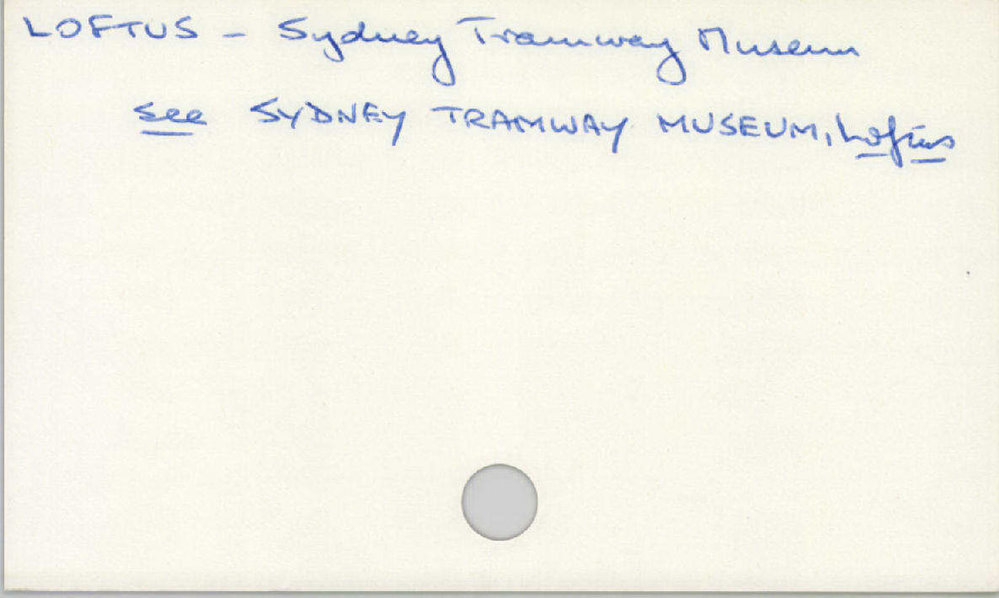 LOFTUS - Sydney Tramway Museum
see SYDNEY TRAMWAY MUSEUM, Loftus